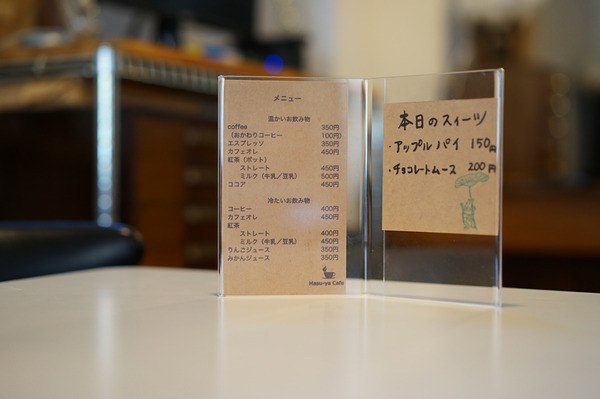 メニュー
温かいお飲み物
coffee 350円
(おかわりコーヒー 100円)
エスプレッソ 350円
カフェオレ 450円
紅茶(ポット)
ストレート 450円
ミルク(牛乳/豆乳) 500円
ココア 450円
冷たいお飲み物
コーヒー 400円
カフェオレ 450円
紅茶
ストレート 400円
ミルク(牛乳/豆乳) 450円
りんごジュース 350円
みかんジュース 350円
Hasu-ya Cafe
本日のスィーツ
・アップルパイ 150円
・チョコレートムース 200円